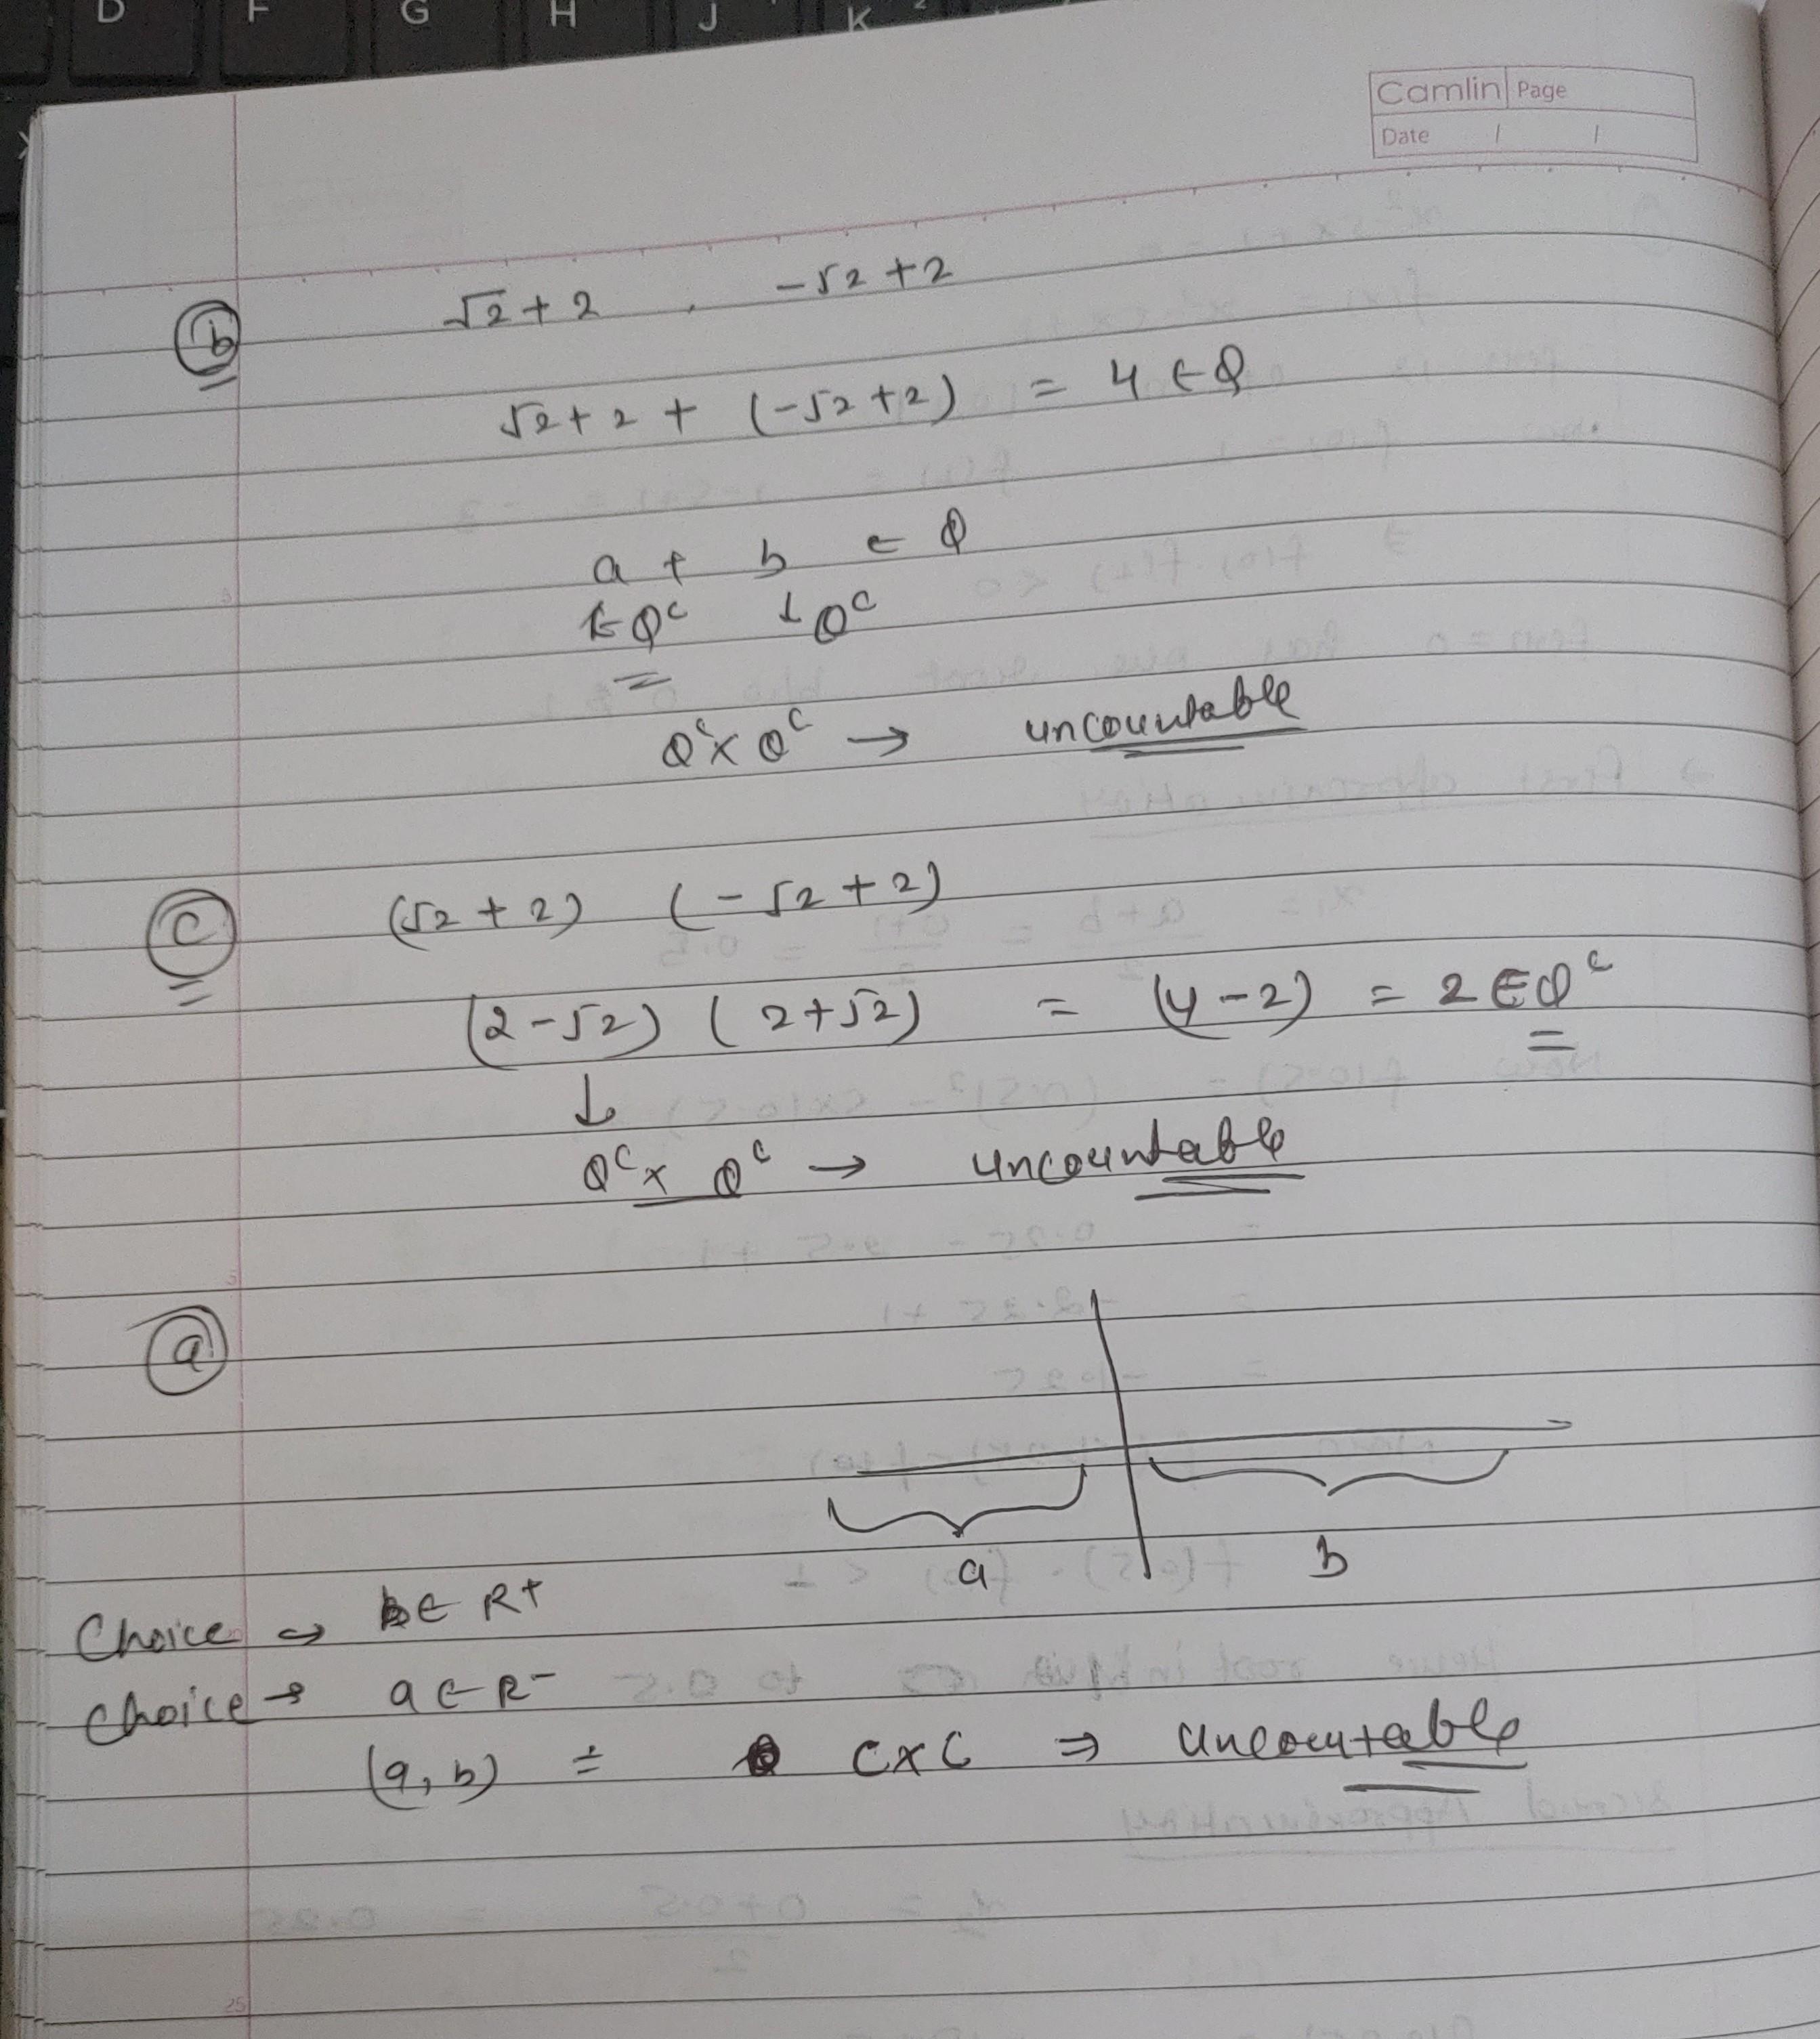 D F G H J K
Camlin Page
Date / /
(b) √2 + 2 , -√2 + 2
√2 + 2 + (-√2 + 2) = 4 ∈ Q
a + b ∈ Q
∈ Qᶜ ↓ Qᶜ
Qᶜ x Qᶜ → uncountable
(c) (√2 + 2) (-√2 + 2)
(2 - √2) (2 + √2) = (4 - 2) = 2 ∈ Qᶜ
↓
Qᶜ x Qᶜ → uncountable
(a)
a b
Choice → b ∈ R+
Choice → a ∈ R-
(a, b) = C x C ⇒ Uncoutable
25